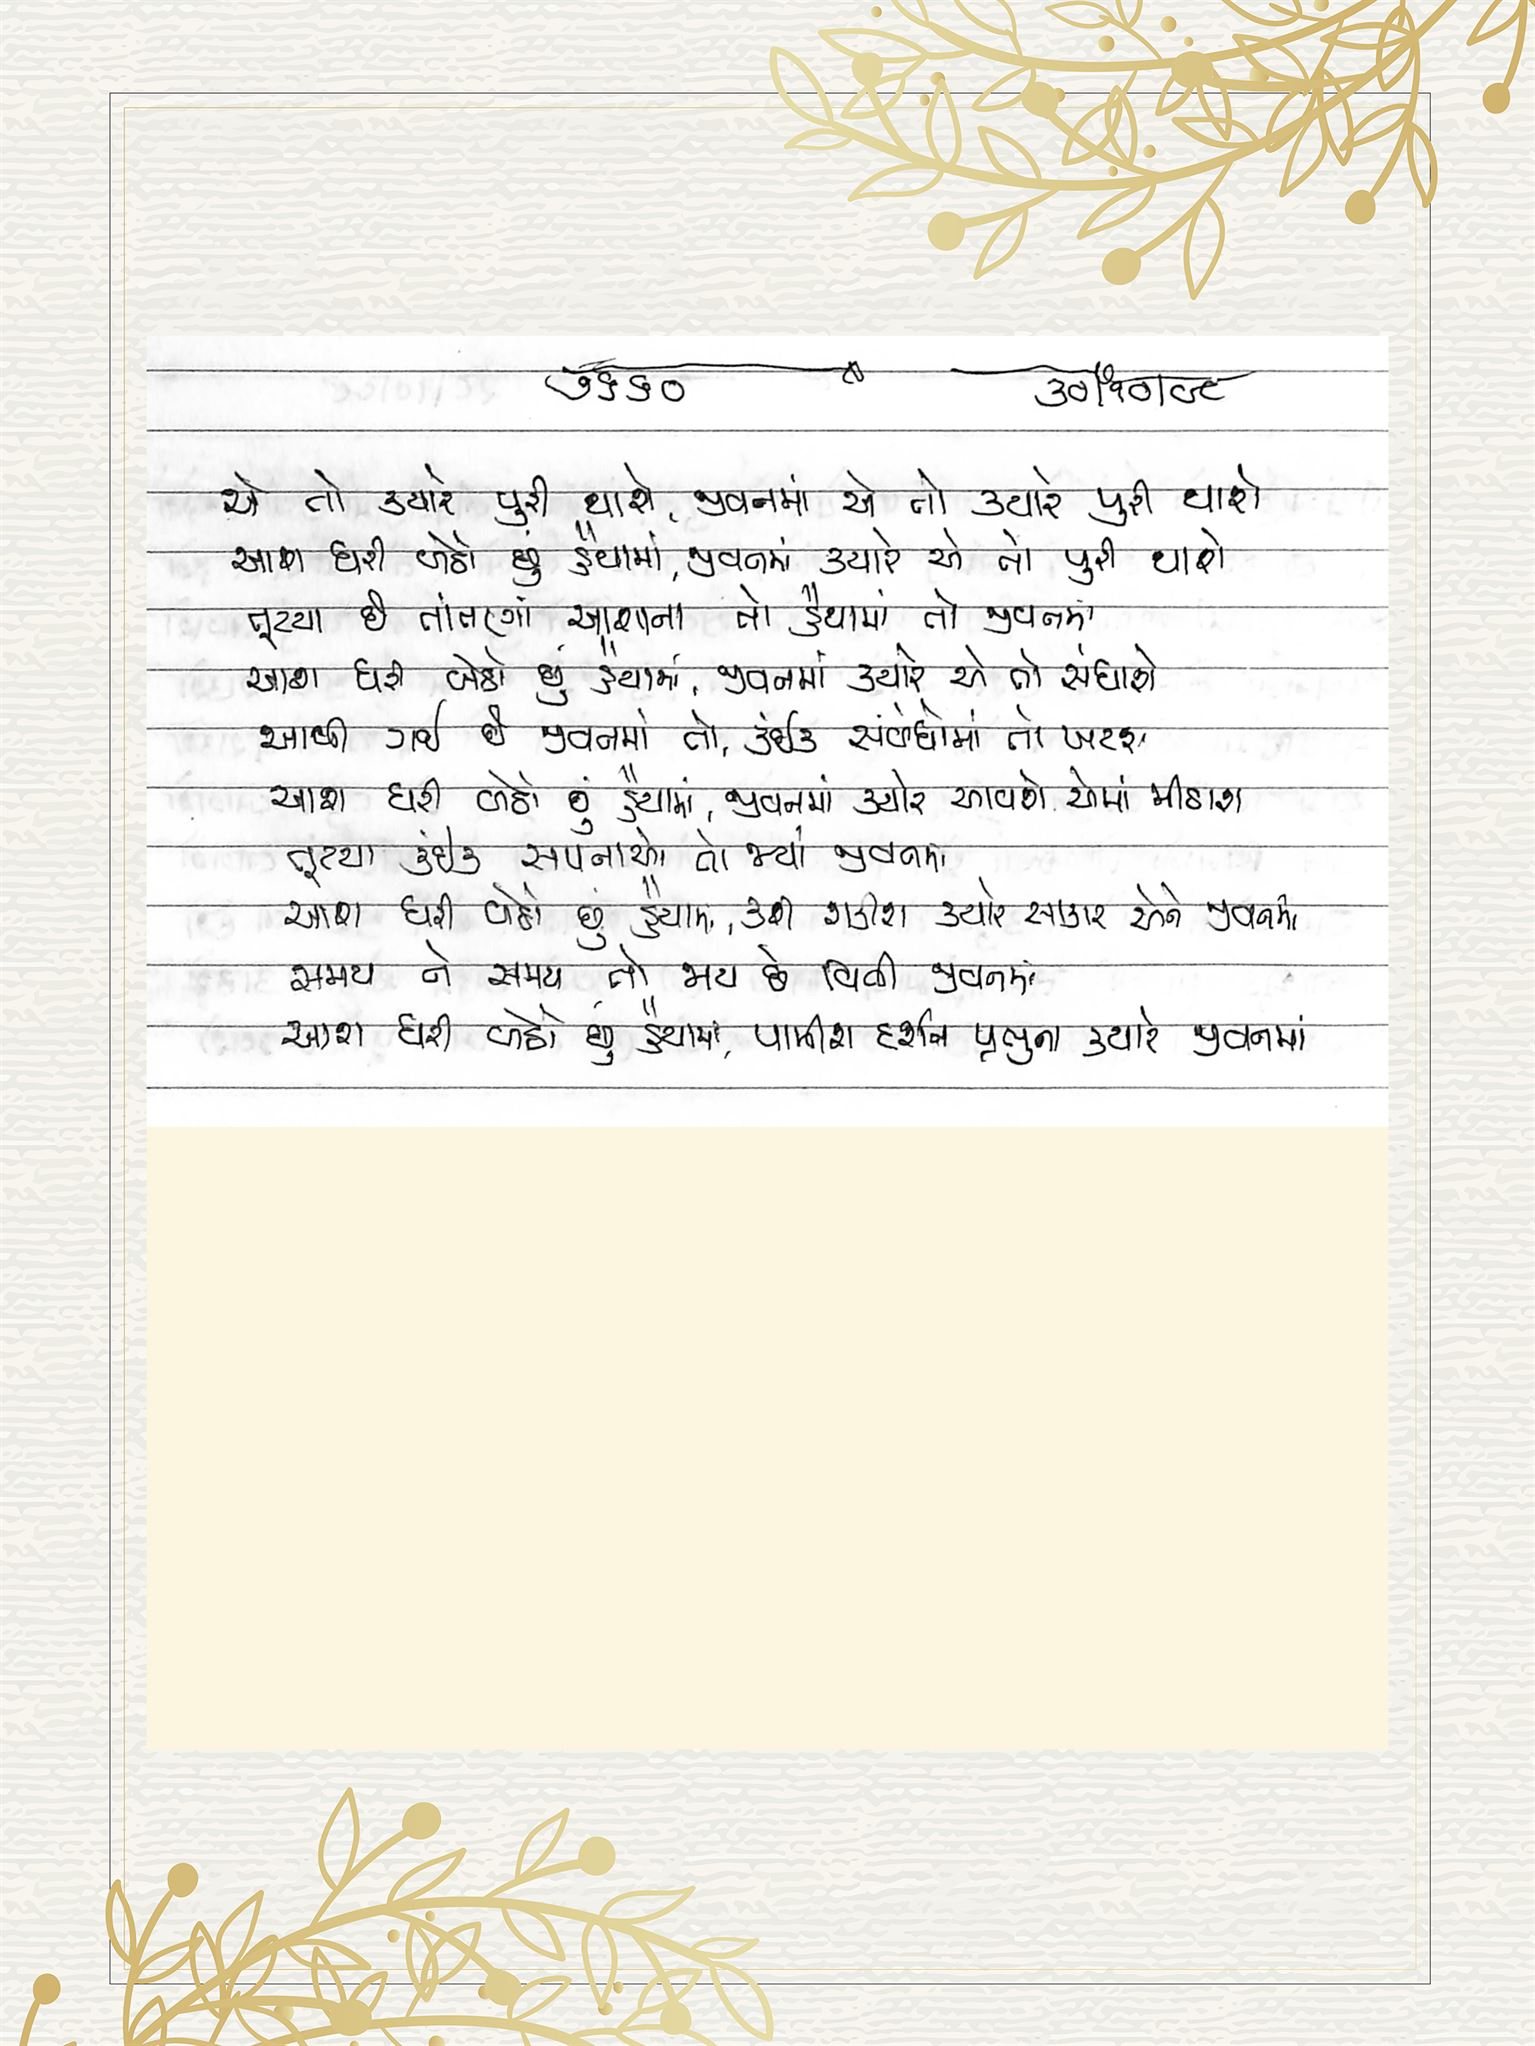 ૭૬૬૦ ૩૦|૧૦|૯૮
એ તો ક્યારે પુરી થાશે, જીવનમાં એ તો ક્યારે પુરી થાશે
આશ ધરી બેઠો છું હૈયામાં, જીવનમાં ક્યારે એ તો પુરી થાશે
તૂટયા છે તાંતણાં આશાના તો હૈયામાં તો જીવનમાં
આશ ધરી બેઠો છું હૈયામાં, જીવનમાં ક્યારે એ તો સંધાશે
આવી ગઈ છે જીવનમાં તો, કંઈક સંબંધોમાં તો ખટાશ
આશ ધરી બેઠો છું હૈયામાં, જીવનમાં ક્યારે આવશે એમાં મીઠાશ
તૂટયા કંઈક સપનાઓ તો જ્યાં જીવનમાં
આશ ધરી બેઠો છું હૈયામાં, કરી શકીશ ક્યારે સાકાર એને જીવનમાં
સમય ને સમય તો જાય છે વિતી જીવનમાં
આશ ધરી બેઠો છું હૈયામાં, પામીશ દર્શન પ્રભુના ક્યારે જીવનમાં